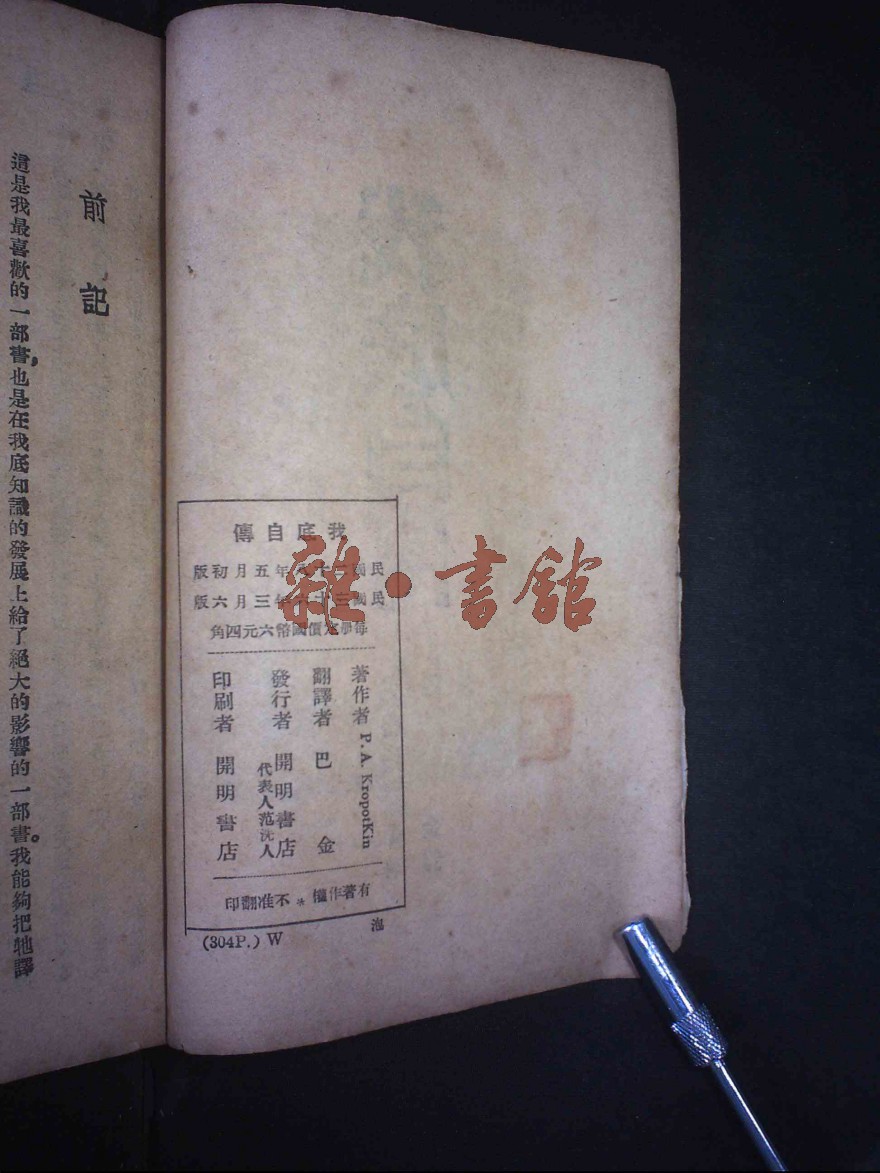 我底自傳
民國二十年五月初版
民國三十年三月六版
價國幣六元四角
著作者 P. A. KropotKin
翻譯者 巴金
發行者 開明書店
代表人范洗人
印刷者 開明書店
有著作權*不准翻印
(304P.) W
雜·書館
前記
這是我最喜歡的一部書,也是在我底知識的發展上給了絕大的影響的一部書。我能夠把牠譯